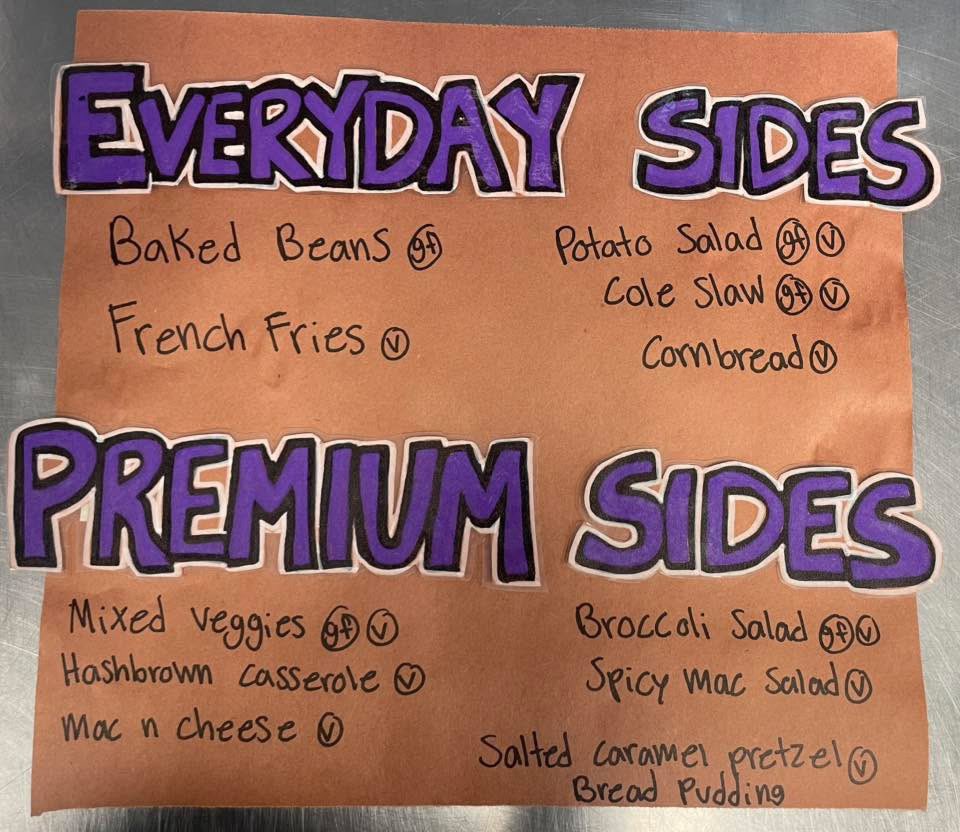 EVERYDAY SIDES
Baked Beans gf
French Fries v
Potato Salad gf v
Cole Slaw gf v
Cornbread v
PREMIUM SIDES
Mixed veggies gf v
Hashbrown casserole v
Mac n cheese v
Broccoli Salad gf v
Spicy mac Salad v
Salted caramel pretzel v
Bread Pudding